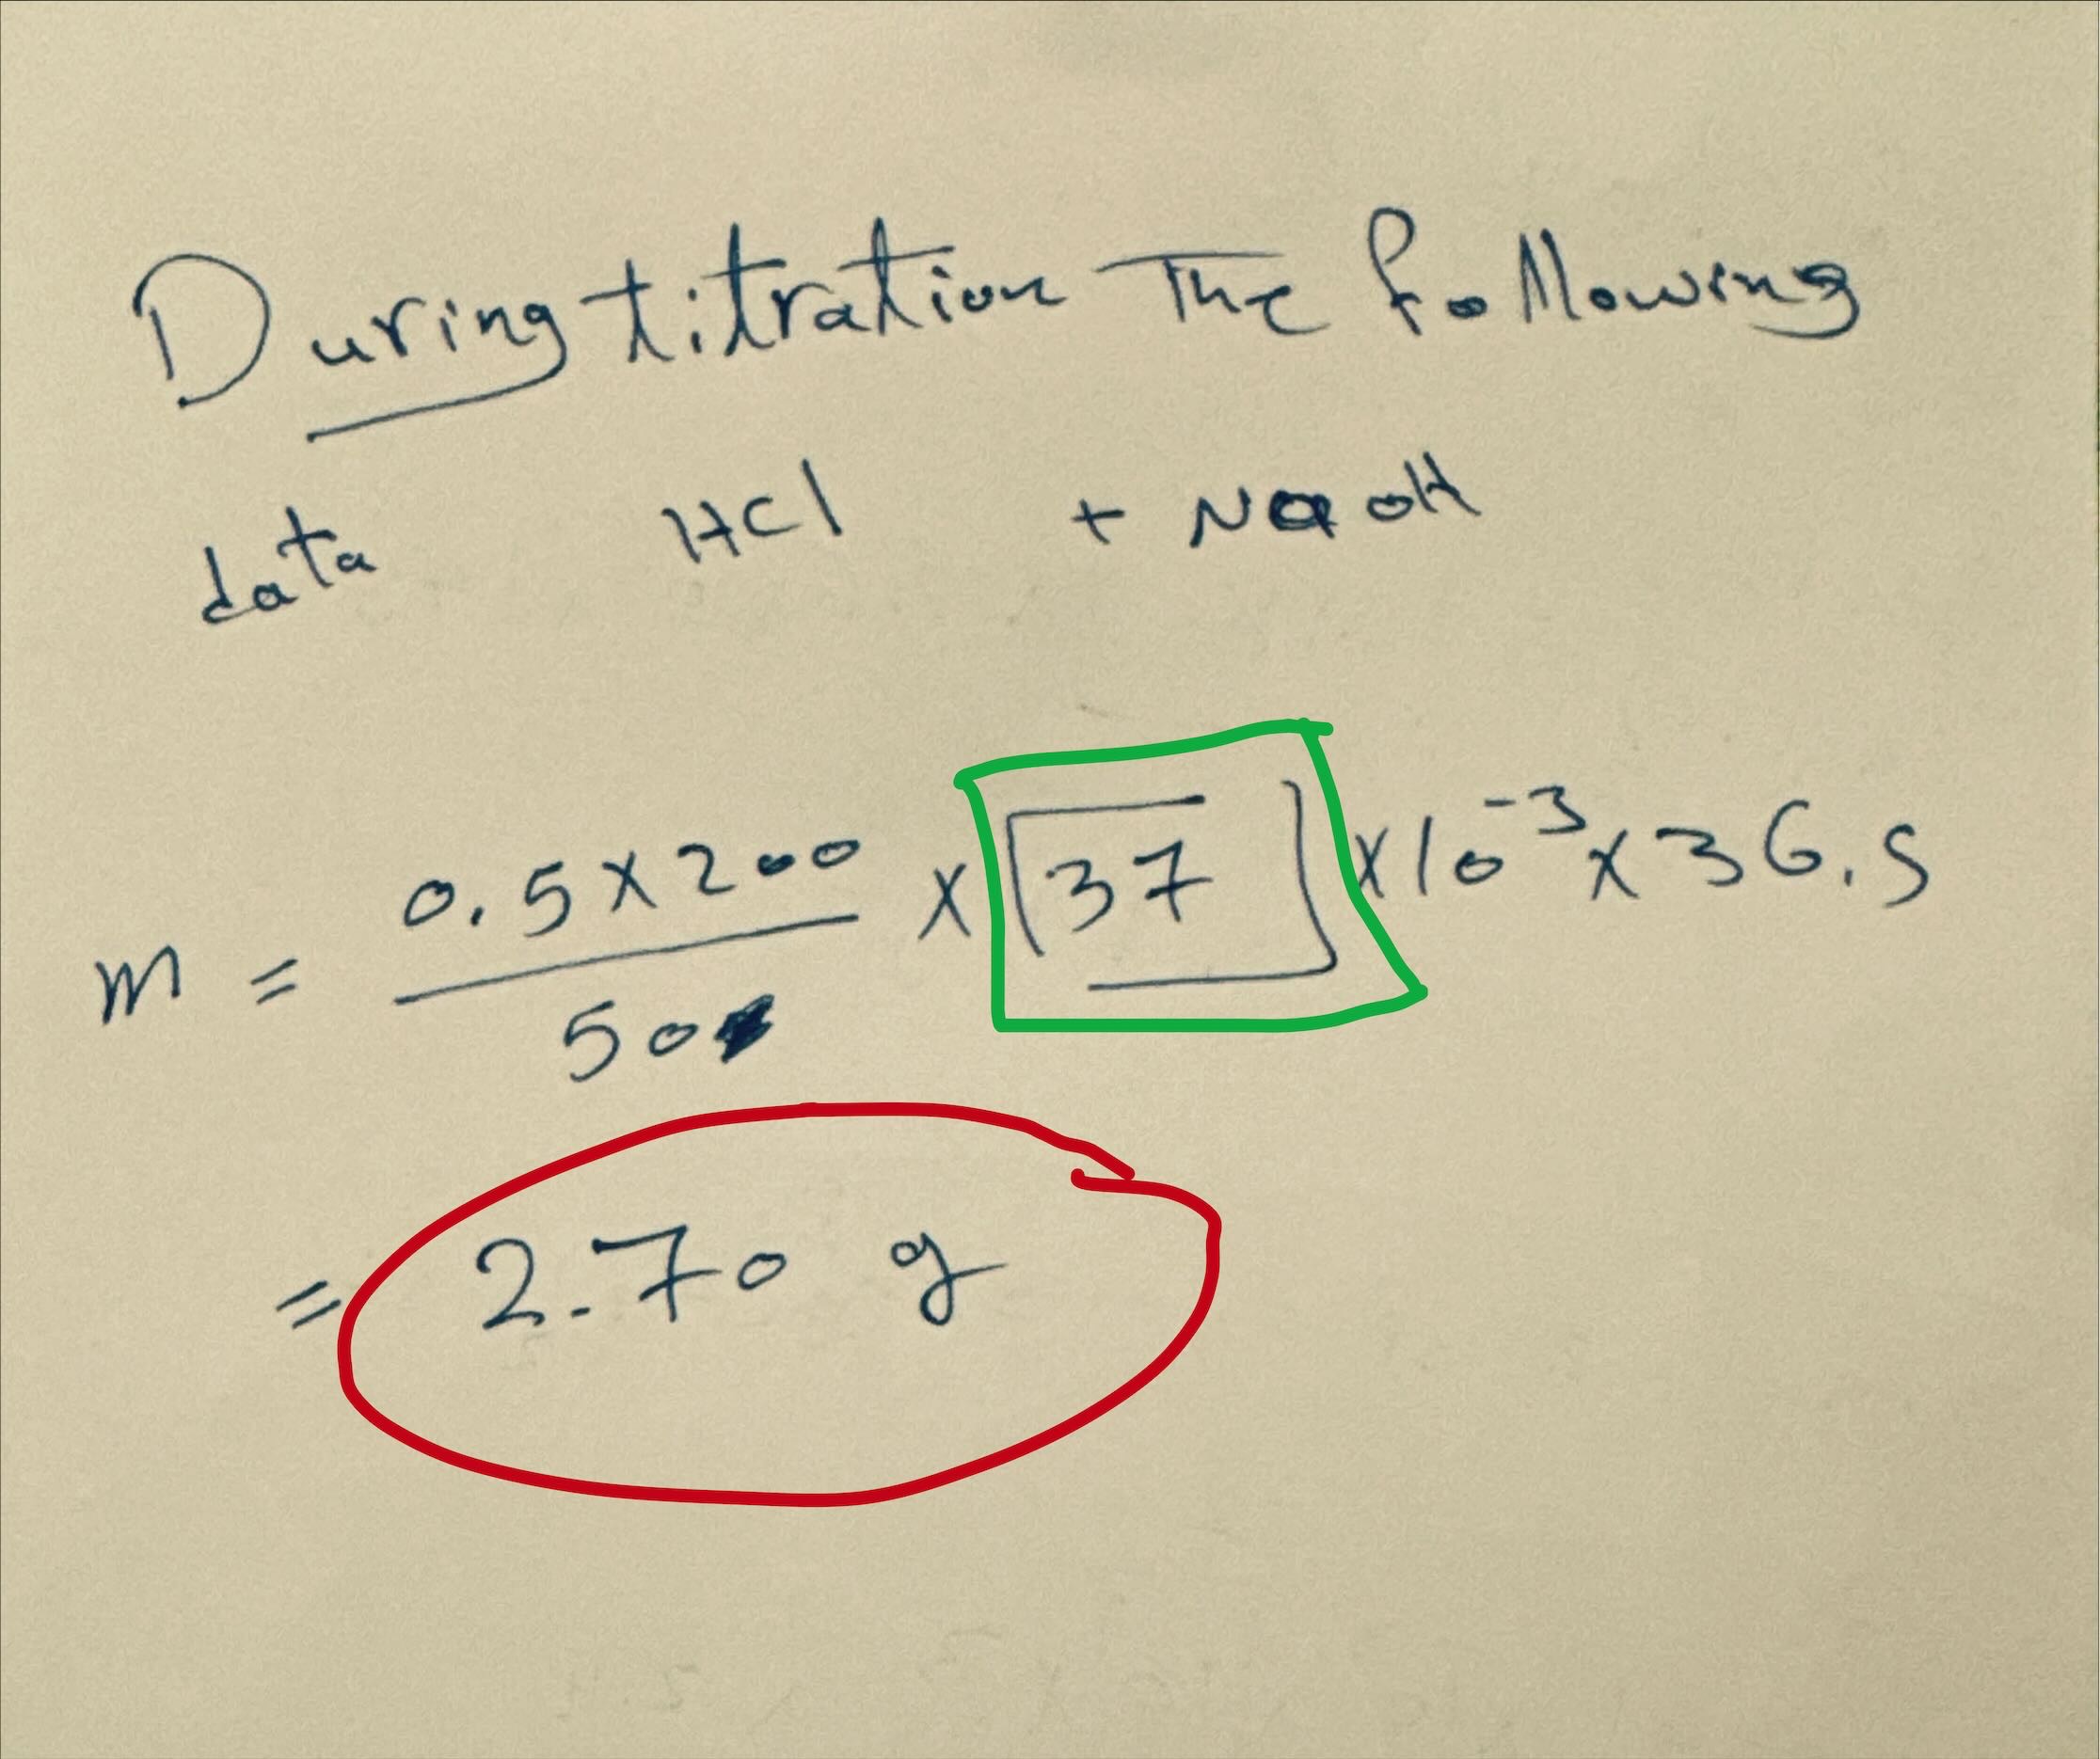 During titration The following
data HCl + NaOH
m = 0.5 x 200 / 50 x [37] x 10⁻³ x 36.5
= 2.70 g